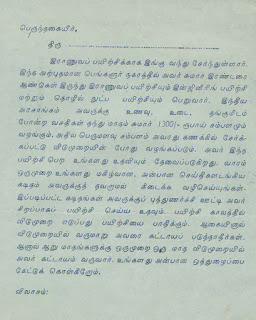 பெருந்தகையீர்,
திரு
இராணுவப் பயிற்சிக்காக இங்கு வந்து சேர்ந்துள்ளார்.
இந்த அற்புதமான பெங்களூர் நகரத்தில் அவர் சுமார் இரண்டரை
ஆண்டுகள் இருந்து இராணுவப் பயிற்சியும் இன்ஜினீரிங் பயிற்சி
மற்றும் தொழில் நுட்ப பயிற்சியும் பெறுவார். இந்திய
அரசாங்கம் அவருக்கு உணவு, உடை, தங்குமிடம்
போன்ற வசதிகள் தந்து மாதம் சுமார் 1300/- ரூபாய் சம்பளமும்
வழங்கும். அதில் பெருமளவு சம்பளம் அவரது கணக்கில் சேர்க்
கப்பட்டு விடுமுறையின் போது வழங்கப்படும். அவர் இந்த
பயிற்சி பெற உங்களது உதவியும் தேவைப்படுகிறது. வாரம்
ஒருமுறை உங்களது மகிழ்வான, அன்பான செய்திகளடங்கிய
கடிதம் அவருக்குத் தவறாமல் கிடைக்க வழிசெய்யுங்கள்.
இப்படிப்பட்ட கடிதங்கள் அவருக்குப் புத்துணர்ச்சி ஊட்டி அவர்
சிறப்பாகப் பயிற்சி செய்ய உதவும். பயிற்சி காலத்தில்
விடுமுறை எடுப்பது பயிற்சியை பாதிக்கும். ஆகையினால்
விடுமுறையில் வருமாறு அவரை கட்டாயப் படுத்தாதீர்கள்.
ஆனால் ஆறு மாதங்களுக்கு ஒருமுறை ஒரு மாத விடுமுறையில்
அவர் கட்டாயம் வருவார். உங்களது அன்பான ஒத்துழைப்பை
கேட்டுக் கொள்கிறோம்.
விலாசம்: